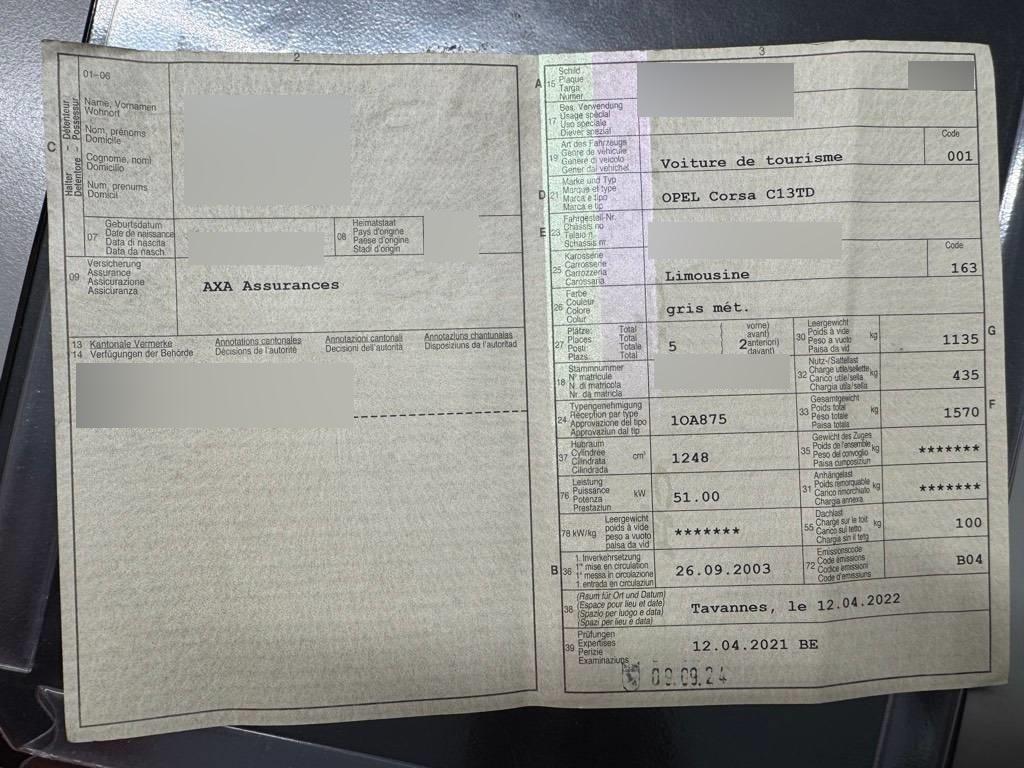 2
01-06
Halter - Détenteur
Detentore - Possessur
C
Name, Vornamen
Wohnort
Nom, prénoms
Domicile
Cognome, nomi
Domicilio
Num, prenums
Domicil
07
Geburtsdatum
Date de naissance
Data di nascita
Data da nasch.
08
Heimatstaat
Pays d'origine
Paese d'origine
Stadi d'origin
09
Versicherung
Assurance
Assicurazione
Assicuranza
AXA Assurances
13 Kantonale Vermerke Annotations cantonales Annotazioni cantonali Annotaziuns chantunalas
14 Verfügungen der Behörde Décisions de l'autorité Decisioni dell'autorità Disposiziuns da l'autoritad
3
A 15
Schild
Plaque
Targa
Numer
17
Bes. Verwendung
Usage spécial
Uso speciale
Diever spezial
19
Art des Fahrzeugs
Genre de véhicule
Genere di veicolo
Gener dal vehichel
Voiture de tourisme
Code
001
D 21
Marke und Typ
Marque et type
Marca e tipo
Marca e tip
OPEL Corsa C13TD
E 23
Fahrgestell-Nr.
Châssis no
Telaio n.
Schassis nr.
25
Karosserie
Carrosserie
Carrozzeria
Carossaria
Limousine
Code
163
26
Farbe
Couleur
Colore
Colur
gris mét.
27
Plätze: Total
Places: Total
Posti: Totale
Plazs: Total
5
2
vorne)
avant)
anteriori)
davant)
30
Leergewicht
Poids à vide
Peso a vuoto
Paisa da vid
kg
1135
G
18
Stammnummer
N° matricule
N. di matricola
Nr. da matricla
32
Nutz-/Sattellast
Charge utile/sellette
Carico utile/sella
Chargia utila/sella
kg
435
24
Typengenehmigung
Réception par type
Approvazione del tipo
Approvaziun dal tip
1OA875
33
Gesamtgewicht
Poids total
Peso totale
Paisa totala
kg
1570
F
37
Hubraum
Cylindrée
Cilindrata
Cilindrada
cm³
1248
35
Gewicht des Zuges
Poids de l'ensemble
Peso del convoglio
Paisa cumposiziun
kg
*******
76
Leistung
Puissance
Potenza
Prestaziun
kW
51.00
31
Anhängelast
Poids remorquable
Carico rimorchiato
Chargia annexa
kg
*******
78 kW/kg
Leergewicht
poids à vide
peso a vuoto
paisa da vid
*******
55
Dachlast
Charge sur le toit
Carico sul tetto
Chargia sin il tetg
kg
100
B 36
1. Inverkehrsetzung
1re mise en circulation
1a messa in circolazione
1. entrada en circulaziun
26.09.2003
72
Emissionscode
Code émissions
Codice emissioni
Code d'emissiuns
B04
38
(Raum für Ort und Datum)
(Espace pour lieu et date)
(Spazio per luogo e data)
(Spazi per lieu e data)
Tavannes, le 12.04.2022
39
Prüfungen
Expertises
Perizie
Examinaziuns
12.04.2021 BE
09.09.24